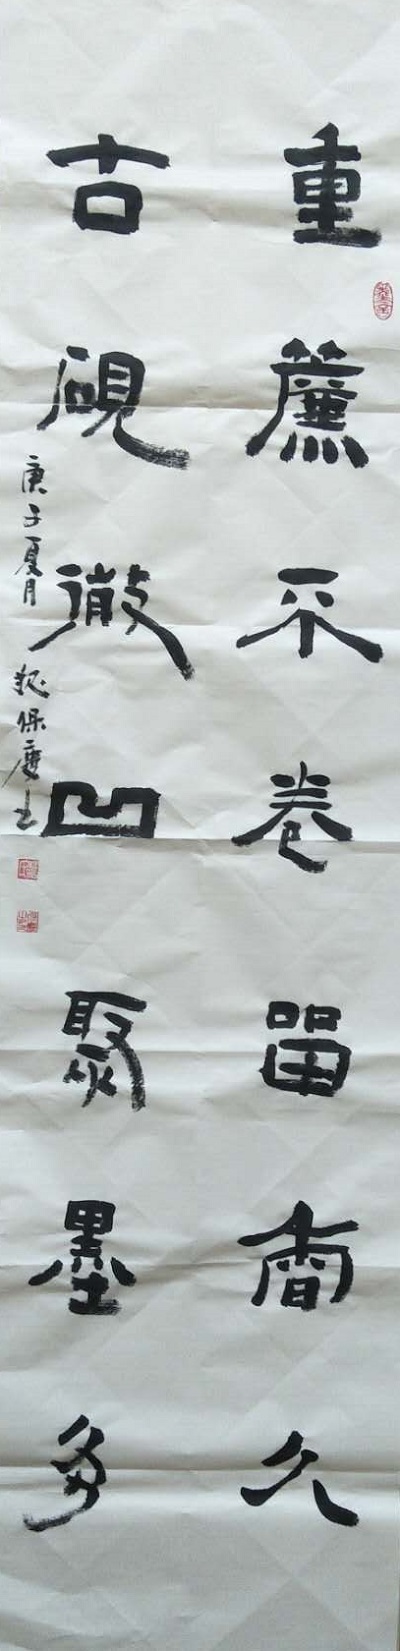 重簾不卷畱香久
古硯微凹聚墨多
庚子夏月 保慶书